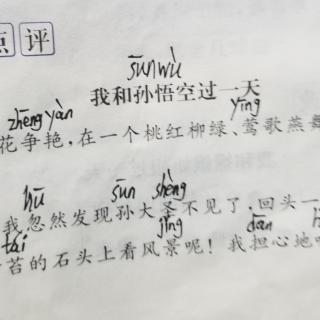 点评
sūnwù
我和孙悟空过一天
zhēng yàn yīng
花争艳，在一个桃红柳绿、莺歌燕舞
hū sūn shèng
我忽然发现孙大圣不见了，回头一
tái jǐng dān
苔的石头上看风景呢！我担心地